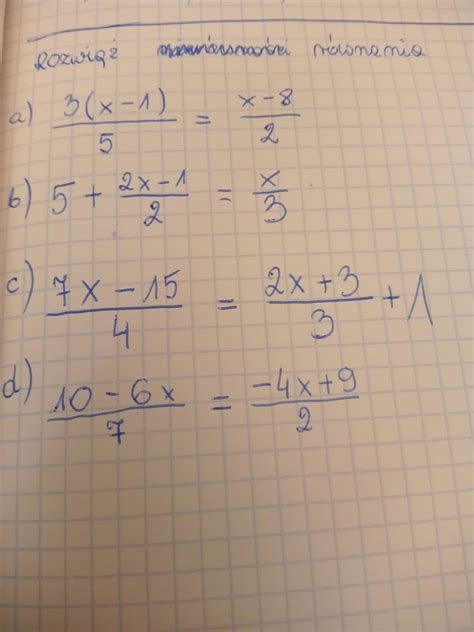 Rozwiąż równania
a) 3(x-1)/5 = x-8/2
b) 5 + 2x-1/2 = x/3
c) 7x-15/4 = 2x+3/3 + 1
d) 10-6x/7 = -4x+9/2